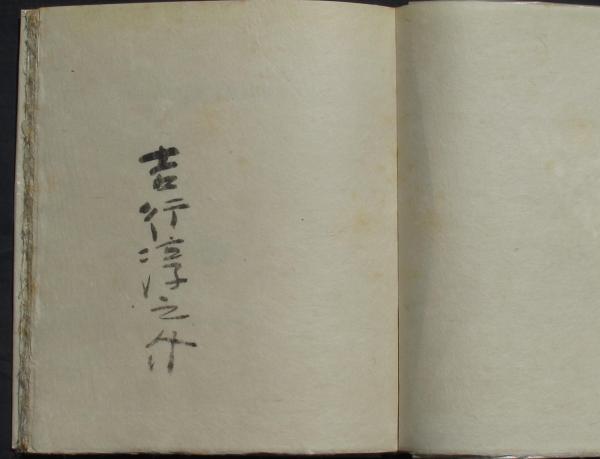 吉行淳之介